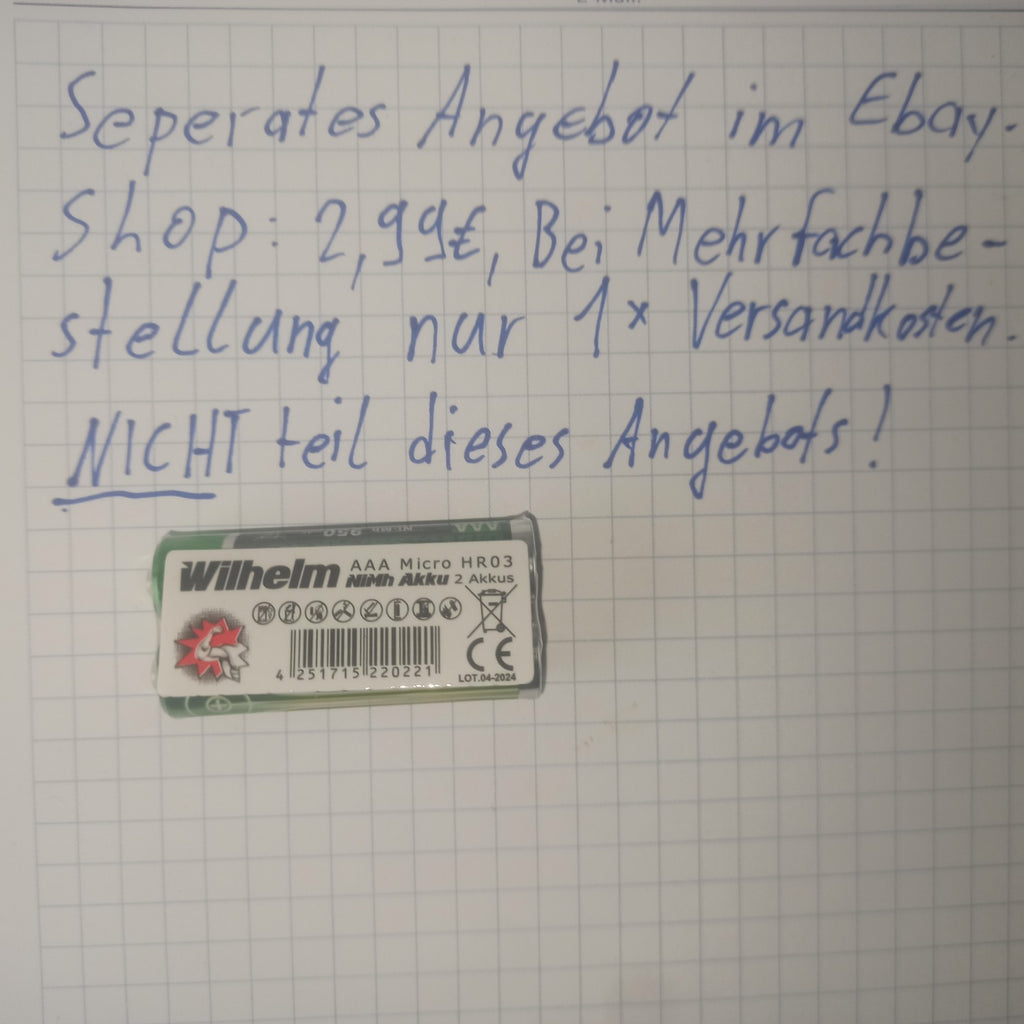 E-Mail:
Seperates Angebot im Ebay-
Shop: 2,99€, Bei Mehrfachbe-
stellung nur 1x Versandkosten.
NICHT teil dieses Angebots!
AAA
Ni-Mh 950
Wilhelm AAA Micro HR03
NiMh Akku 2 Akkus
CE
4 251715 220221
LOT.04-2024